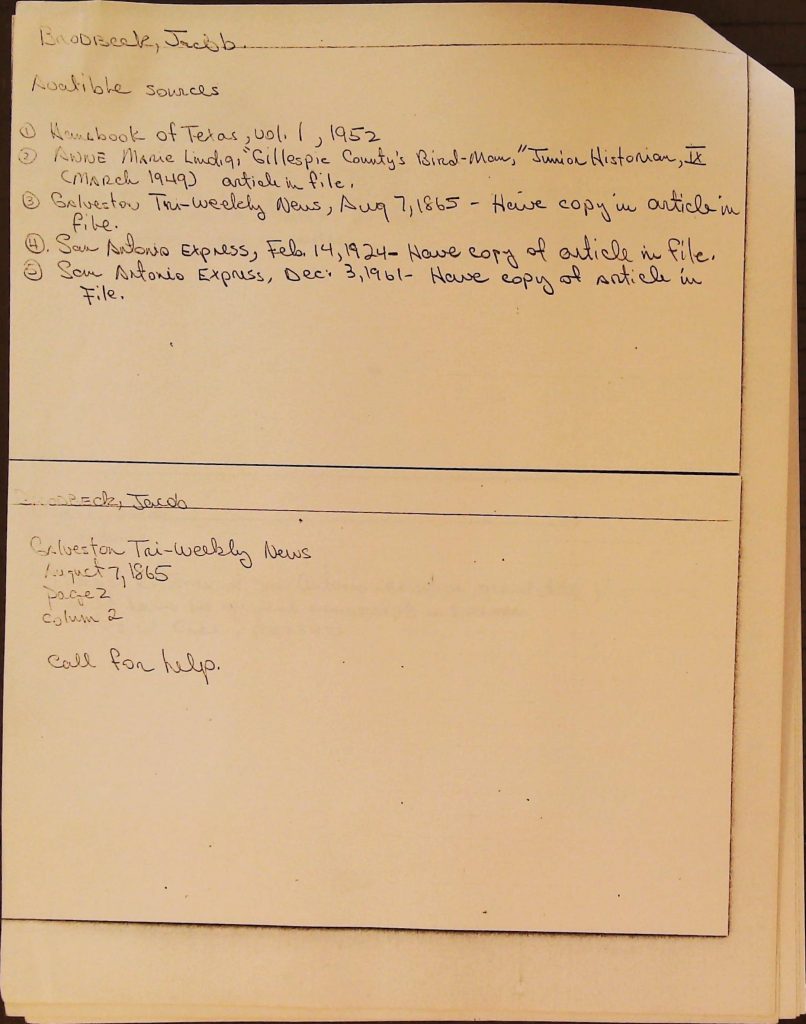 Brodbeck, Jacob.
Availible sources
① Handbook of Texas, vol. 1, 1952
② Anne Marie Lindig, "Gillespie County's Bird-Man," Junior Historian, IX
(March 1949) article in file.
③ Galveston Tri-Weekly News, Aug 7, 1865 - Have copy in article in
file.
④. San Antonio Express, Feb. 14, 1924 - Have copy of article in file.
⑤ San Antonio Express, Dec. 3, 1961 - Have copy of article in
File.
Brodbeck, Jacob
Galveston Tri-Weekly News
August 7, 1865
page 2
colum 2
call for help.